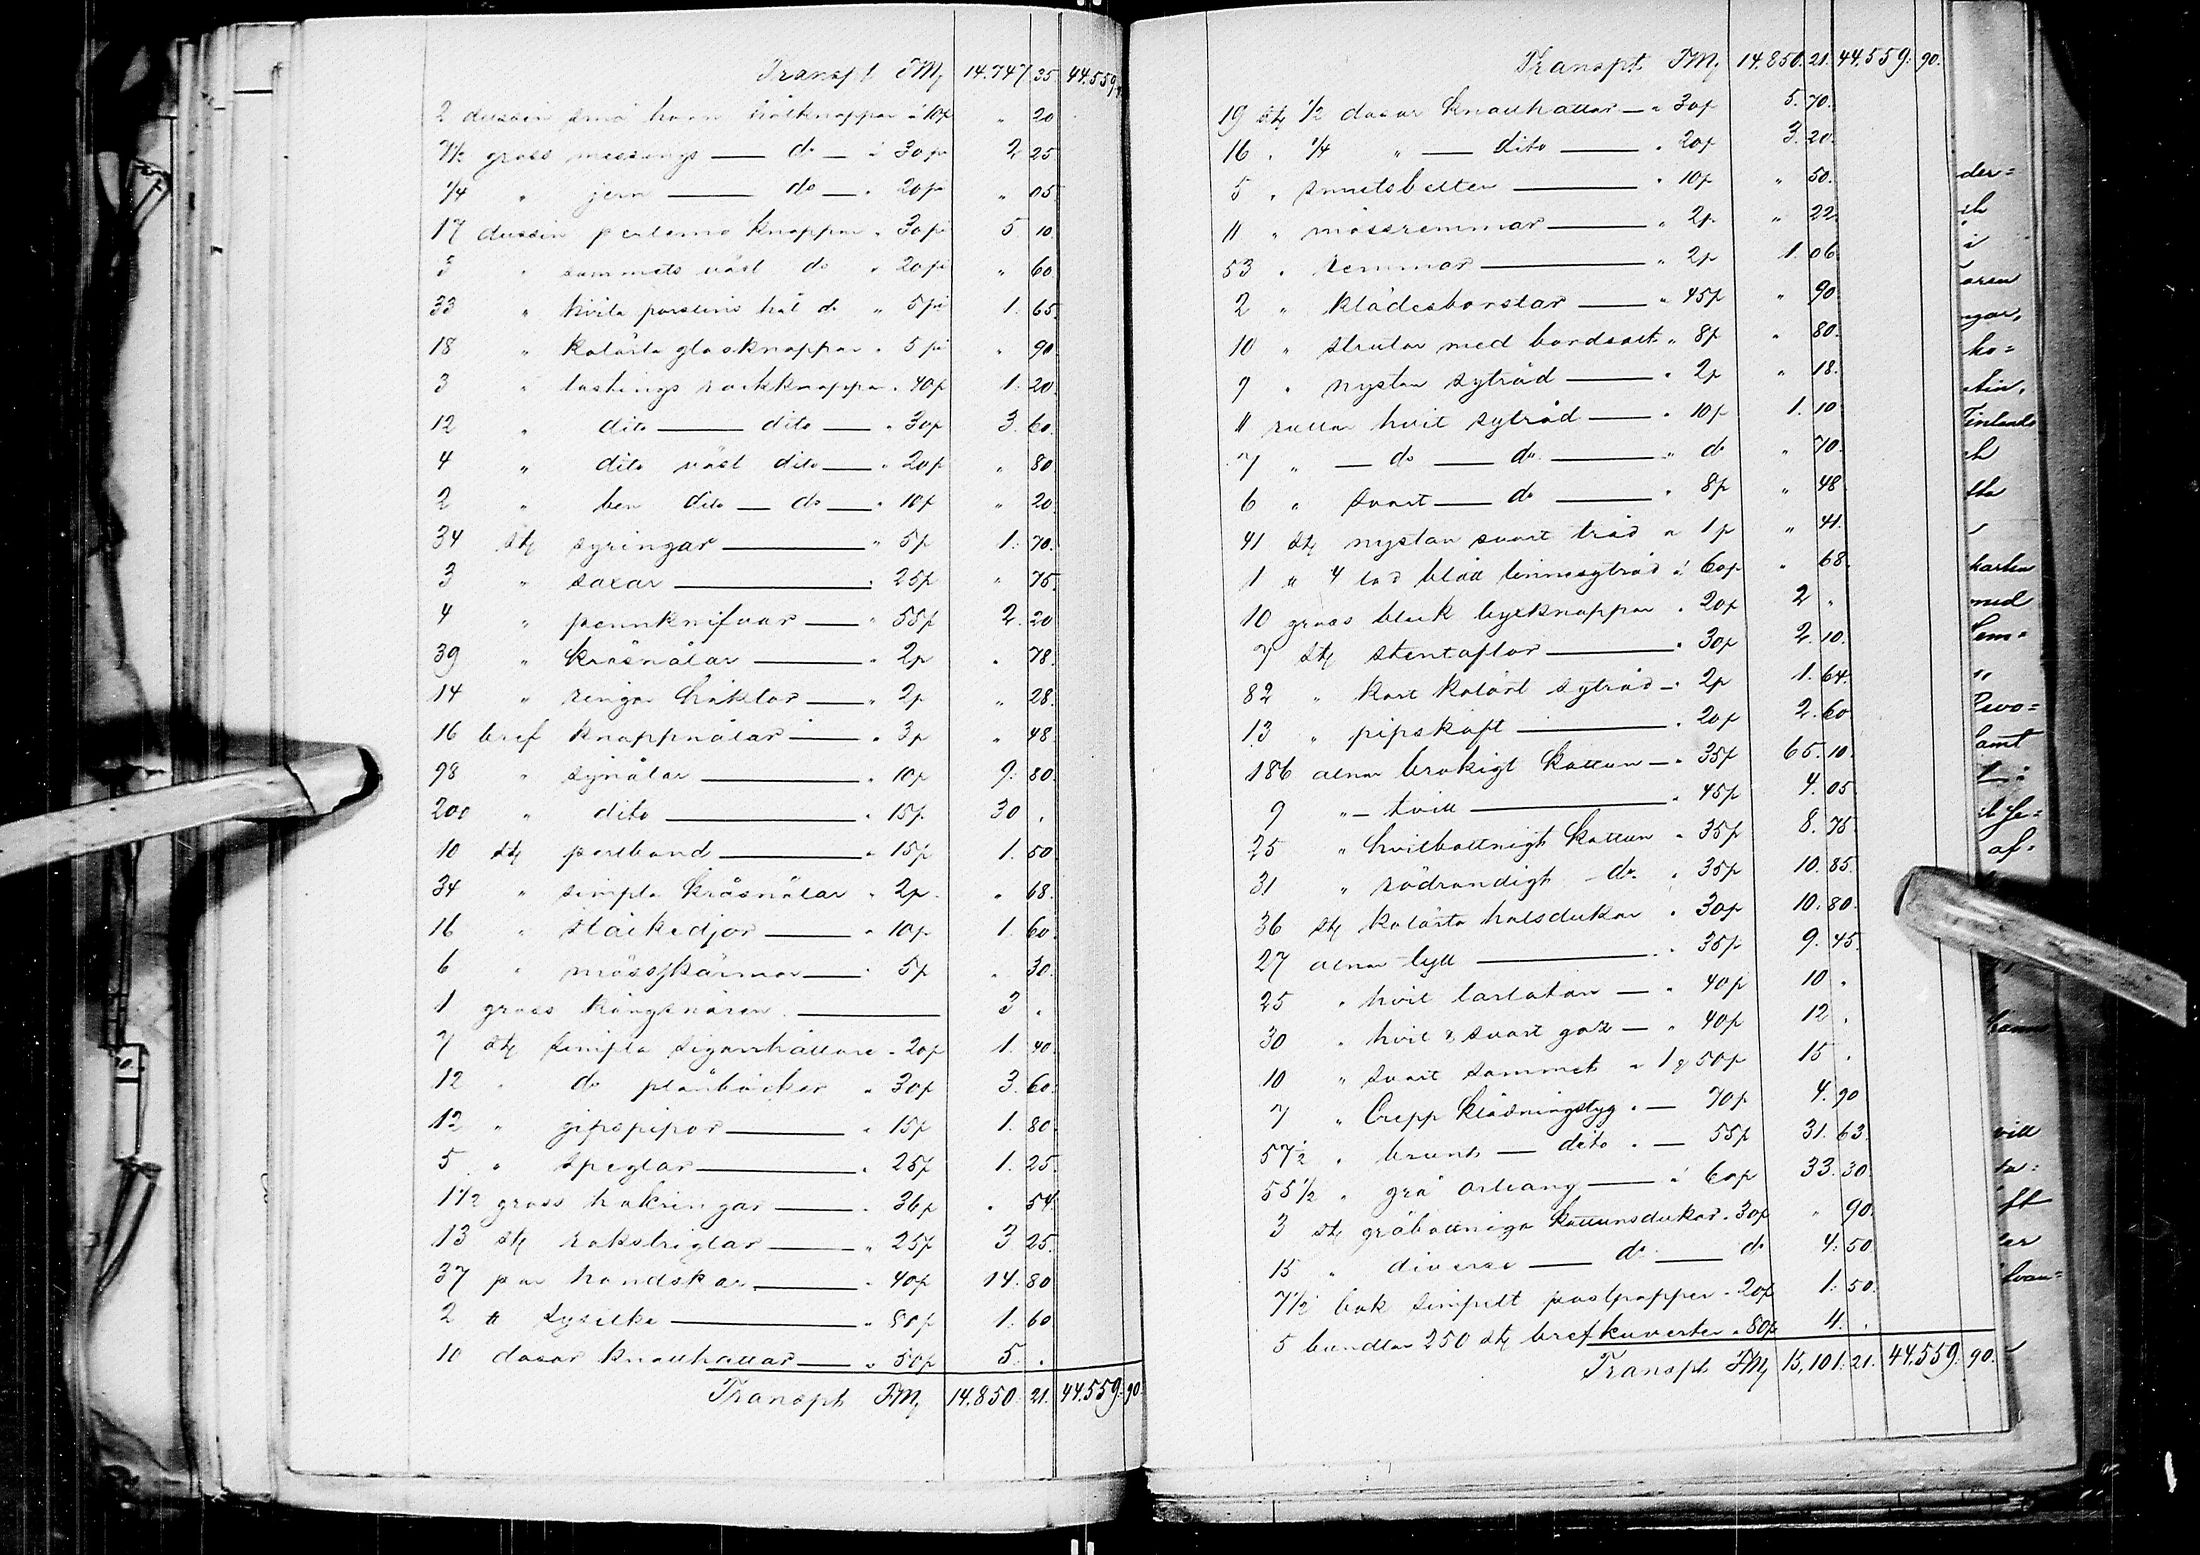 Transpt FMk 14.747 35 44.559
2 dussin små horn hålknappar à 10p " 20
7½ gross messings — do — " 30pi 2 25
¼ " jern — do — " 20pi " 05
17 dussin perlemo knappar " 30pi 5 10
3 " sammets väst do " 20pi " 60
33 " hvita porslins hål do " 5pi 1. 65.
18 " kulörta glasknappar " 5 pi " 90
3 " lastings rockknappar " 40p 1. 20
12 " dito — dito — " 30p 3. 60.
4 " dito väst dito — " 20p " 80
2 " ben dito — do — " 10p " 20
34 stk syringar — " 5p 1. 70.
3 " saxar — " 25p " 75
4 " pennknifvar — " 55p 2. 20
39 " kråsnålar — " 2p " 78.
14 " ringa häktor — " 2p " 28.
16 bref knappnålar — " 3p " 48
98 " synålar — " 10p 9. 80.
200 " dito — " 15p. 30 .
10 stk perlband — " 15p 1. 50
34 " simpla kråsnålar " 2p. " 68.
16 " stålkedjor — " 10p 1. 60.
6 " mösskärmar — " 5p " 30.
1 gross kängsnören — 3 .
7 stk simpla sigarrhållare " 20p 1. 40.
12 " do plånböcker " 30p 3. 60.
12 " gipspipor — " 15p 1. 80.
5 " speglar — " 25p 1. 25.
1½ gross hakringar — " 36p " 54.
13 stk rakstriglar — " 25p 3 25.
37 par handskar — " 40p 14. 80
2 ℔ sysilke — " 80p 1. 60
10 dosor knallhattar — " 50p 5. .
Transpt FMk 14.850. 21. 44.559. 90
Transpt FMk 14.850. 21. 44.559. 90.
19 stk ½ dosor knallhattar — " 30p 5. 70.
16 " ¼ " — dito — " 20p 3. 20.
5 " smutsbelten — " 10p " 50.
11 " mössremmar — " 2p " 22.
53 " remmar — " 2p 1. 06.
2 " klädesborstar — " 45p " 90
10 " strutar med bordsalt " 8p " 80.
9 " nystan sytråd — " 2p " 18.
11 rullar hvit sytråd — " 10p 1. 10
7 " — do — do — " do " 70.
6 " svart — do — " 8p " 48
41 stk nystan svart tråd " 1p " 41.
1 ℔ 4 lod blått linnesytråd à 60p " 68.
10 gross bleck byxknappar " 20p 2 "
7 stk stentaflor — " 30p 2. 10.
82 " kort kulört sytråd — " 2p 1. 64.
13 " pipskaft — " 20p 2. 60
186 alnar brokigt kattun — " 35p 65. 10.
9 " — tvill — " 45p 4. 05
25 " hvitbottnigt kattun " 35p 8. 75
31 " rödrandigt do. " 35p 10. 85.
36 stk kulörta halsdukar " 30p 10. 80.
27 alnar tyll — " 35p 9. 45
25 " hvit tarlatan — " 40p 10 .
30 " hvit & svart gaz — " 40p 12 .
10 " svart sammet " 1 50p 15 .
7 " Crepp klädningstyg " — 70p 4. 90
57½ " brunt — dito " — 55p 31. 63.
55½ " grå orleang — à 60p 33. 30
3 stk gråbottniga kattunsdukar " 30p " 90.
15 " diverse — do — do 4. 50
7½ bok simpelt postpapper " 20p 1. 50.
5 bundtar 250 stk brefkuverter " 80p 4. .
Transpt FMk 15,101. 21. 44.559. 90.